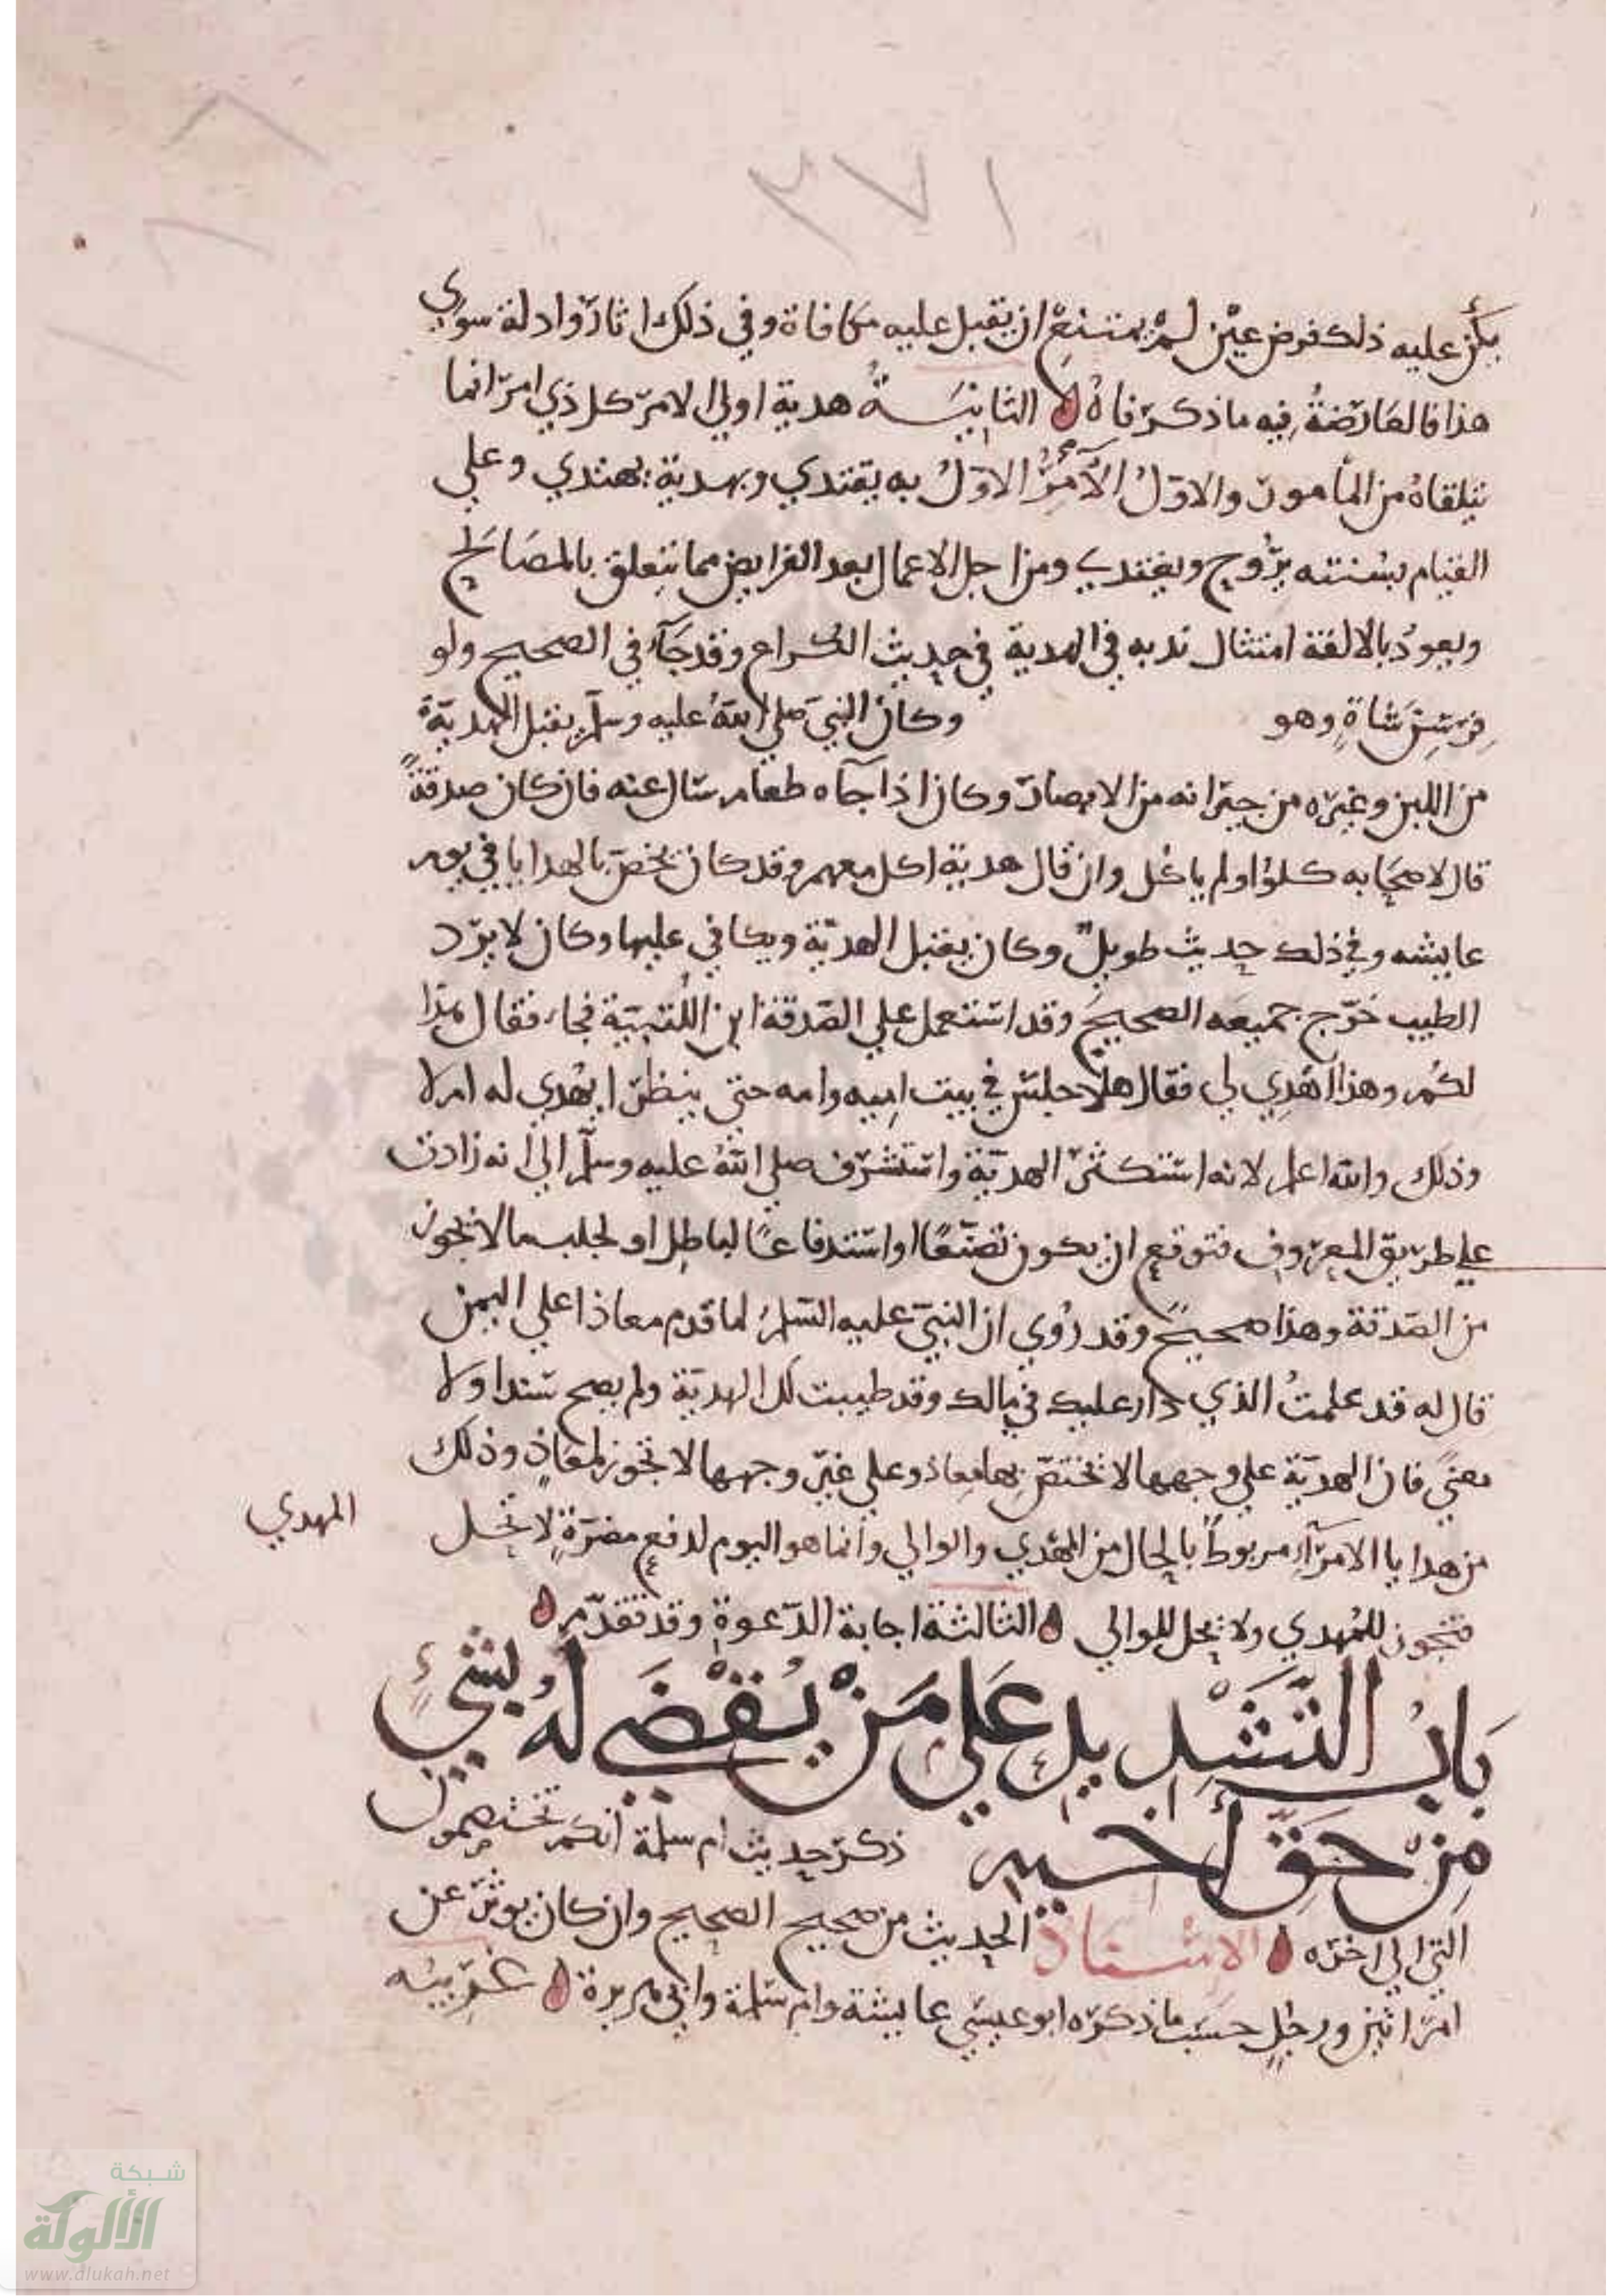 ٣٧١
يكن عليه ذلك فرض عين لم يمتنع ان يقبل عليه مكافاة وفي ذلك اثار وادلة سوي
هذا فالعارضة فيه ما ذكرناه الثانية هدية اولي الامر كل ذي امر انما
يتلقاه من المأمور والاول الآمر الاول به يقتدي وبهديه يهتدي وعلي
القيام بسنته يروح ويغتدي ومن اجل الاعمال بعد الفرايض مما يتعلق بالمصالح
ويعود بالالفة امتثال ندبه في الهدية في حديث الكراع وقد جآء في الصحيح ولو
فرسن شاة وهو وكان النبي صلي الله عليه وسلم يقبل الهدية
من اللبن وغيره من جيرانه من الانصار وكان اذا جآه طعام سال عنه فان كان صدقة
قال لاصحابه كلوا ولم ياكل وان قال هدية اكل معهم وقد كان يخص بالهدايا في يوم
عايشه وفي ذلك حديث طويل وكان يقبل الهدية ويكافي عليها وكان لا يرد
الطيب خرج جميعه الصحيح وقد استعمل علي الصدقة ابن اللتبية فجاء فقال هذا
لكم وهذا اهدي لي فقال هلا جلس في بيت ابيه وامه حتي ينظر ايهدي له ام لا
وذلك والله اعلم لانه استكثر الهدية واستشرف صلي الله عليه وسلم الي انه زادت
علي طريق المعروف فتوقع ان يكون تصنعا او استدفاعا لباطل او لجلب ما لا يجوز
من الصدقة وهذا صحيح وقد روي ان النبي عليه السلم لما قدم معاذا علي اليمن
قال له قد علمت الذي دار عليك في مالك وقد طيبت لك الهدية ولم يصح سندا ولا
معني فان الهدية علي وجهها لا تختص بها معاذ وعلي غير وجهها لا تجوز لمعاذ وذلك
من هدايا الامرآء مربوط بالحال من المهدي والوالي وانما هو اليوم لدفع مضرة لا تحل
المهدي
فتجوز للمهدي ولا يحل للوالي الثالثة اجابة الدعوة وقد تقدم
باب التشديد علي من يقضي له بشيء
من حق أخيه ذكر حديث ام سلمة انكم تختصمون
الي الي اخره الاسناد الحديث من صحيح الصحيح وان كان يوثر عن
امراتين ورجل حسب ما ذكره ابو عيسي عايشة وام سلمة وابي هريرة غريبه
شبكة
الألوكة
www.alukah.net